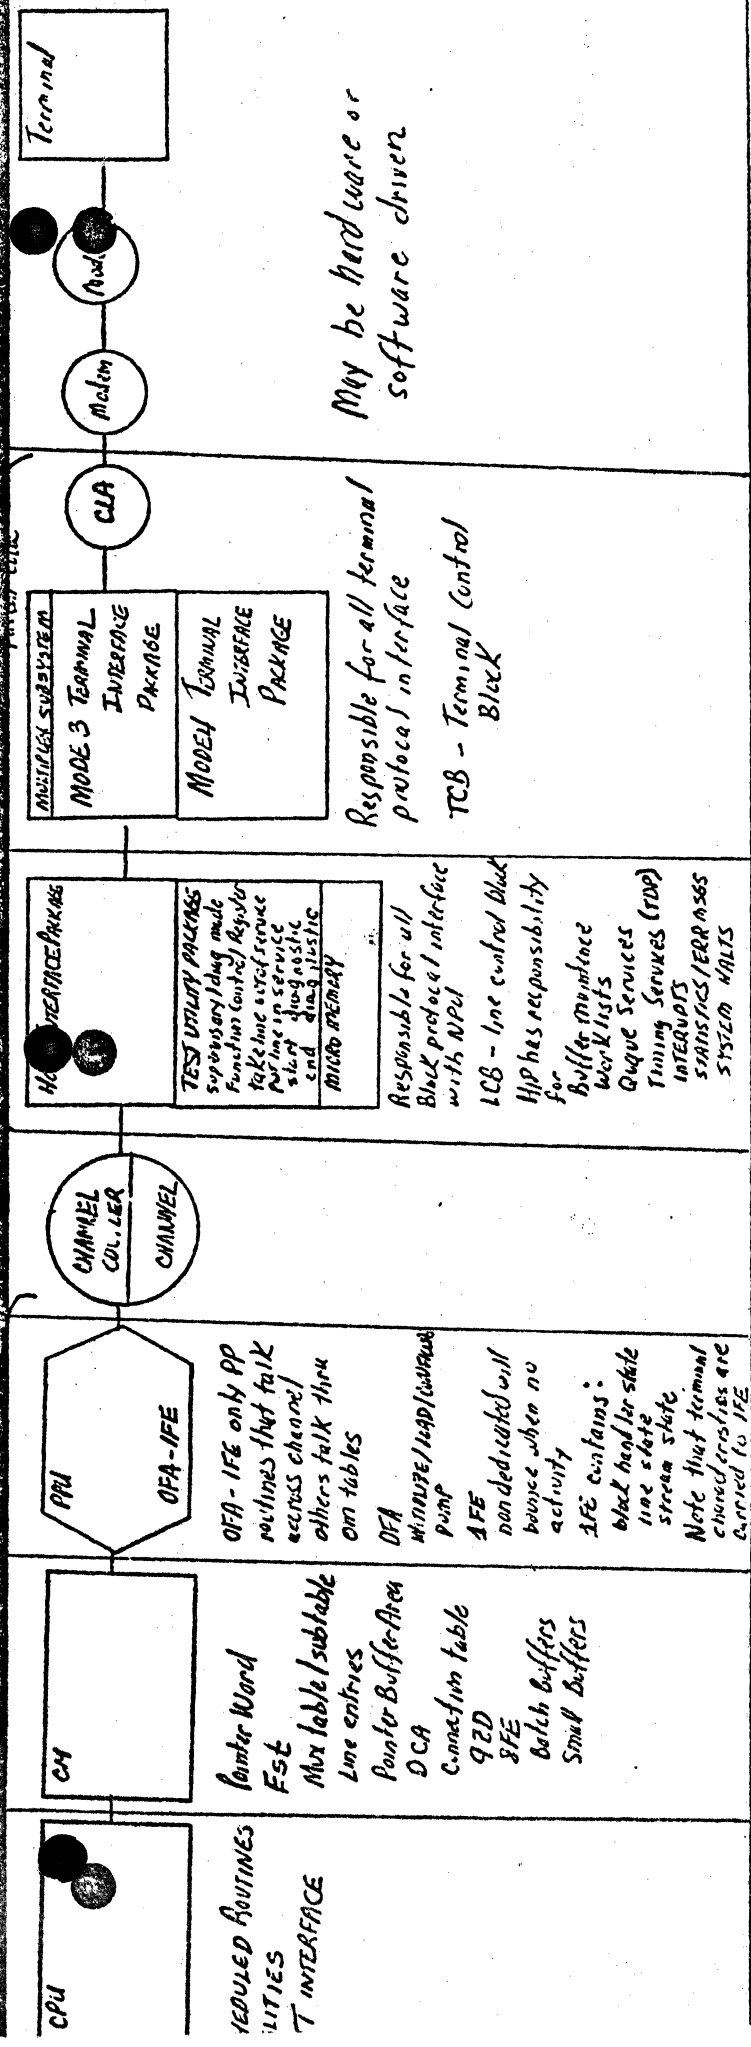 CPU
HEDULED ROUTINES
LITIES
T INTERFACE
CM
Pointer Word
Est
Mux table/subtable
Line entries
Pointer Buffer Area
DCA
Connection table
9ZD
8FE
Batch Buffers
Small Buffers
PPU
OFA-IFE
OFA-IFE only PP
routines that talk
accross channel
others talk thru
cm tables
OFA
PUMP
1FE
nondedicated will
bounce when no
activity
1FE contains:
block handler state
line state
stream state
Note that terminal
characteristics are
carried to 1FE
CHANNEL
COU. LER
CHANNEL
TERFACE PACKAGE
TEST UTILITY PACKAGE
supervisory/diag mode
Function Control Register
take line out of service
put line in service
start diagnostic
end diagnostic
MICRO MEMORY
Responsible for all
Block protocal interface
with NPU
LCB - line control block
HIP has responsibility
for
Buffer maintence
Worklists
Queue Services
Timing Services (TDP)
INTERUPTS
STATISTICS/ERR MSGS
SYSTEM HALTS
MULTIPLEX SUBSYSTEM
MODE 3 TERMINAL
INTERFACE
PACKAGE
MODE4 TERMINAL
INTERFACE
PACKAGE
CLA
Responsible for all terminal
protocal interface
TCB - Terminal Control
Block
Modem
Mod
Terminal
May be hardware or
software driven